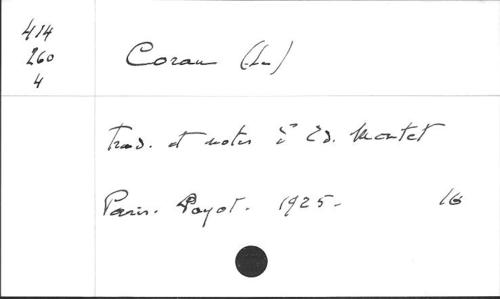 414
260
4
Coran (Le)
Trad. et notes d' Ed. Montet
Paris. Payot. 1925. 16